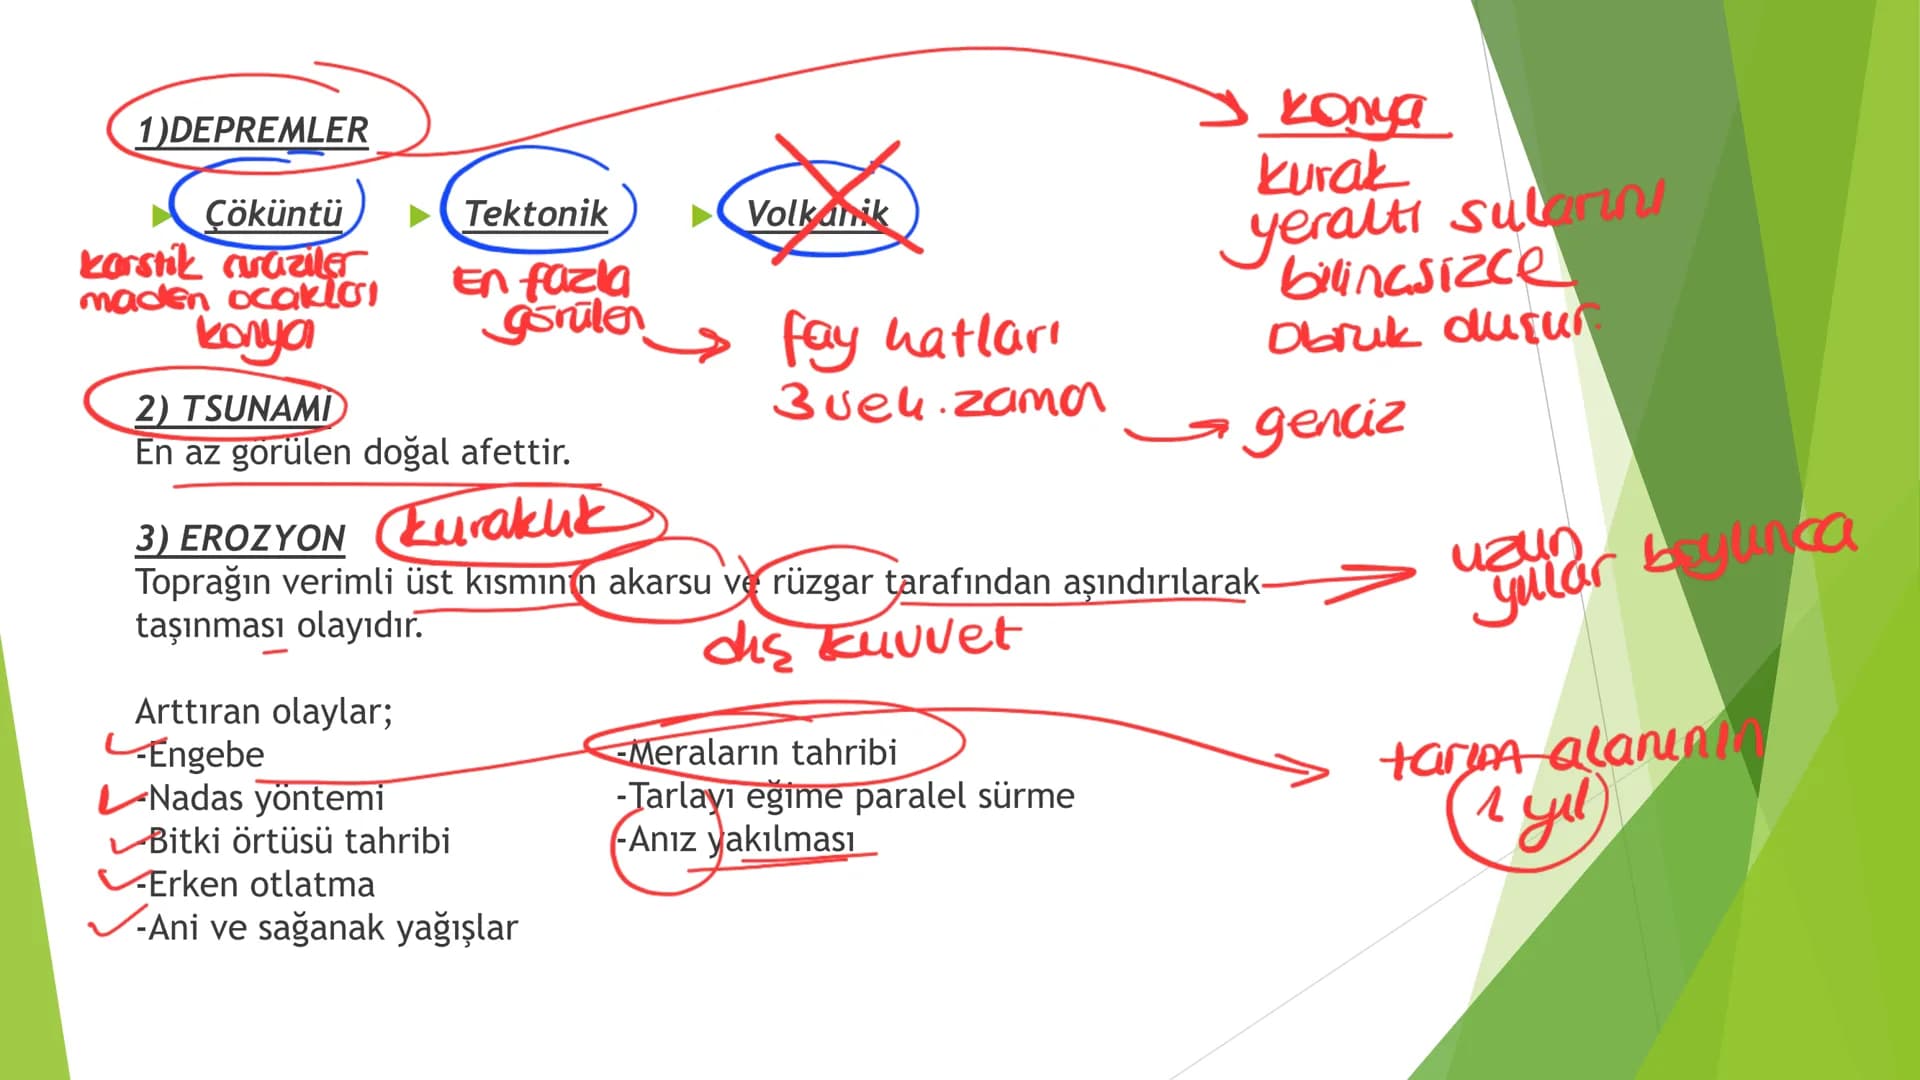 1)DEPREMLER
Çöküntü
Tektonik
Volkanik
karstik araziler
maden ocakları
konya
En fazla
görülen
fay hatları
3 ve 4. zaman
genciz
konya
kurak
yeraltı sularını
bilinçsizce
Obruk oluşur.
2) TSUNAMİ
En az görülen doğal afettir.
3) EROZYON
kuraklık
Toprağın verimli üst kısmının akarsu ve rüzgar tarafından aşındırılarak
taşınması olayıdır.
dış kuvvet
uzun
yıllar boyunca
Arttıran olaylar;
-Engebe
-Nadas yöntemi
-Bitki örtüsü tahribi
-Erken otlatma
-Ani ve sağanak yağışlar
-Meraların tahribi
-Tarlayı eğime paralel sürme
-Anız yakılması
tarım alanının
1 yıl